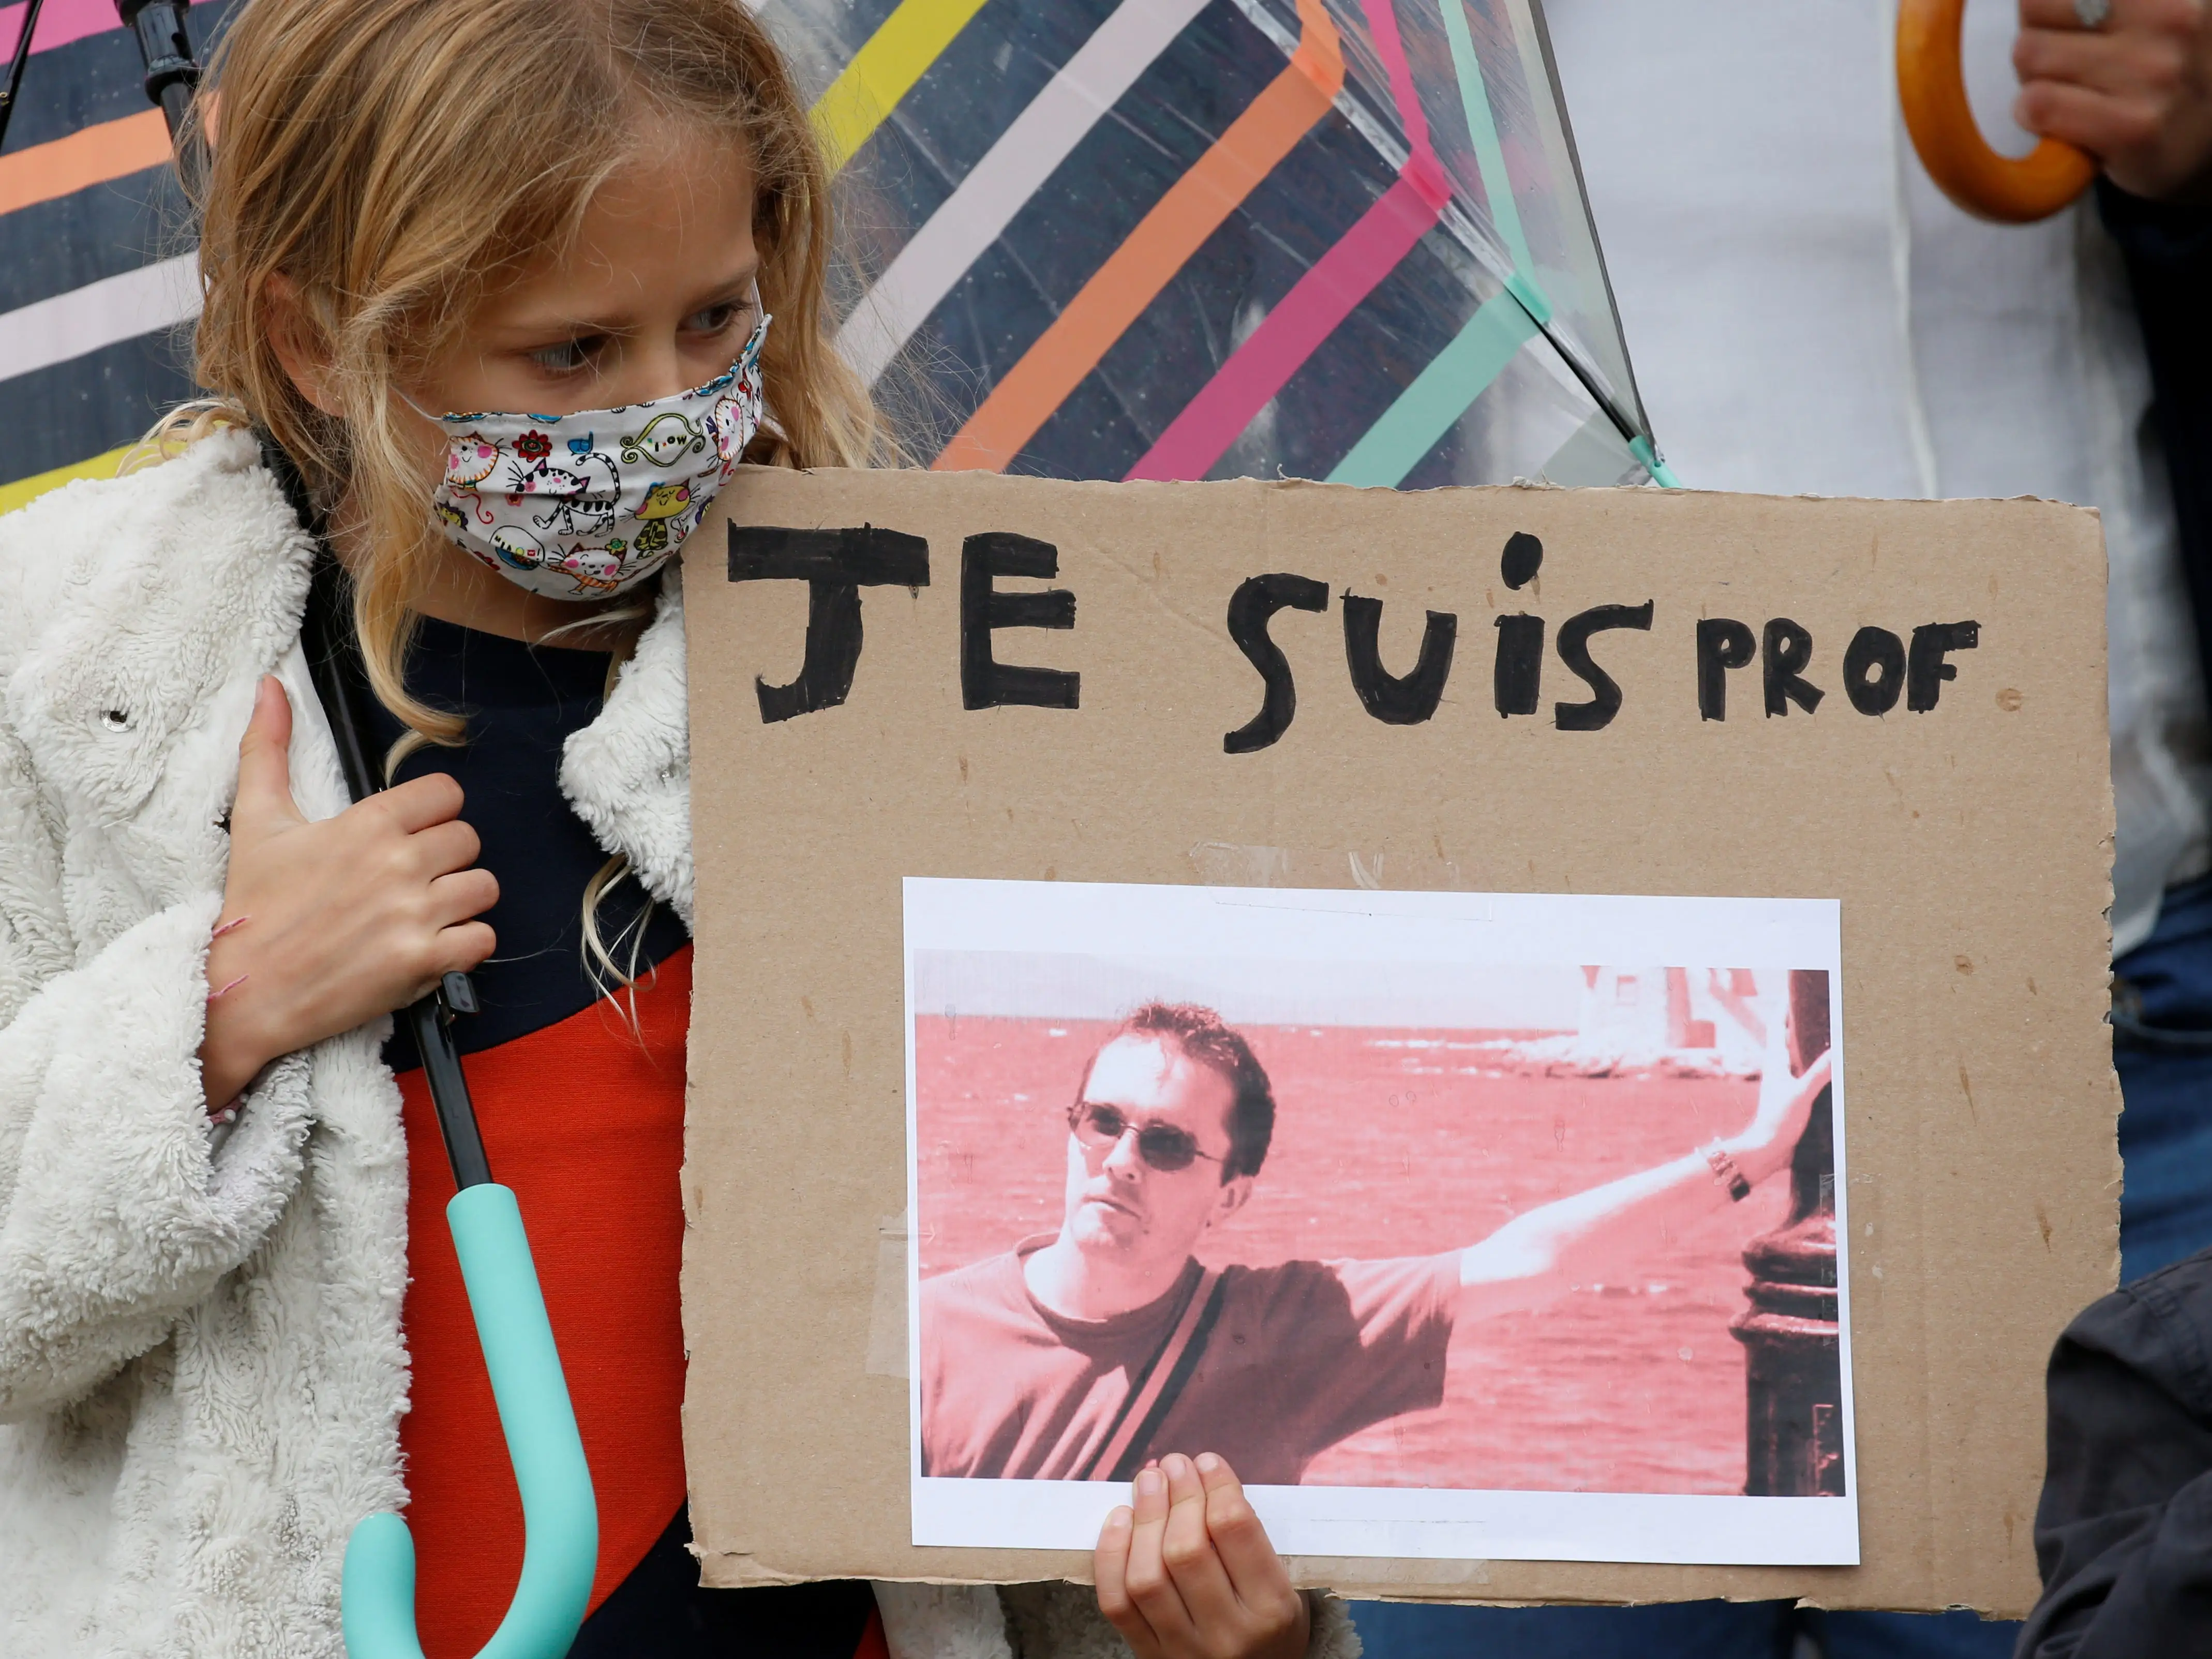 JE SUiS PROF